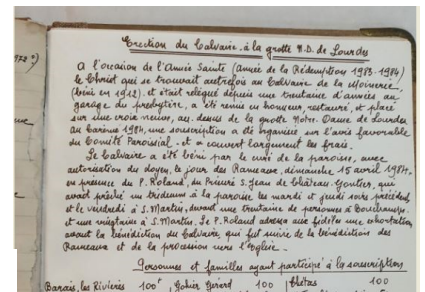 1972°)
Erection du Calvaire à la grotte N.D. de Lourdes
A l'occasion de l'Année Sainte (année de la Rédemption 1983-1984)
le Christ qui se trouvait autrefois au Calvaire de la
(béni en 1912) et était relégué depuis une trentaine d'années au
garage du presbytère, a été remis en honneur, restauré, et placé
sur une croix neuve, au-dessus de la grotte Notre-Dame de Lourdes
au Carême 1984, une souscription a été organisée sur l'avis favorable
du Comité Paroissial - et a couvert largement les frais.
Le Calvaire a été béni par le curé de la paroisse, avec
autorisation du doyen, le jour des Rameaux, dimanche 15 avril 1984,
en présence du P. Roland, du Prieuré S. Jean de Château-Gontier, qui
avait prêché un triduum à la paroisse les mardi et jeudi soirs précédents
et le vendredi à S. Martin, devant une trentaine de personnes à Bouchamps
et une vingtaine à S. Martin. Le P. Roland adressa aux fidèles une exhortation
avant la bénédiction du Calvaire, qui fut suivie de la bénédiction des
Rameaux et de la procession vers l'église.
Personnes et familles ayant participé à la souscription
les Rivières 100F Gohier Gérard 100 100